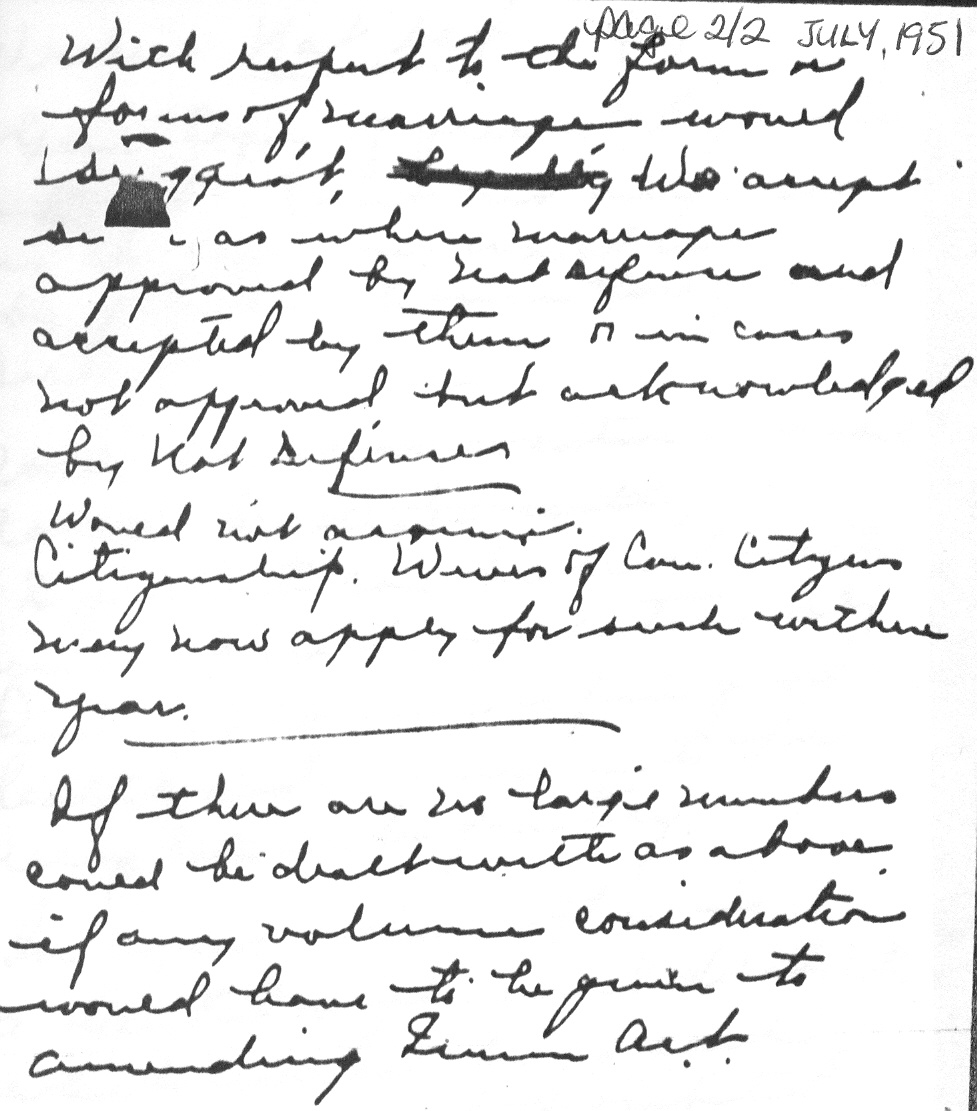 page 2/2 JULY, 1951
With respect to the form or
forms of marriage would
suggest, We accept
as where marriage
approved by Nat Defense and
accepted by them or in cases
not approved but acknowledged
by Nat Defense
Would not
Citizenship. Wives of Can. Citizens
may now apply for such within
year.
If there are no large numbers
could be dealt with as above
if any volume consideration
would have to be given to
amending Imm Act.